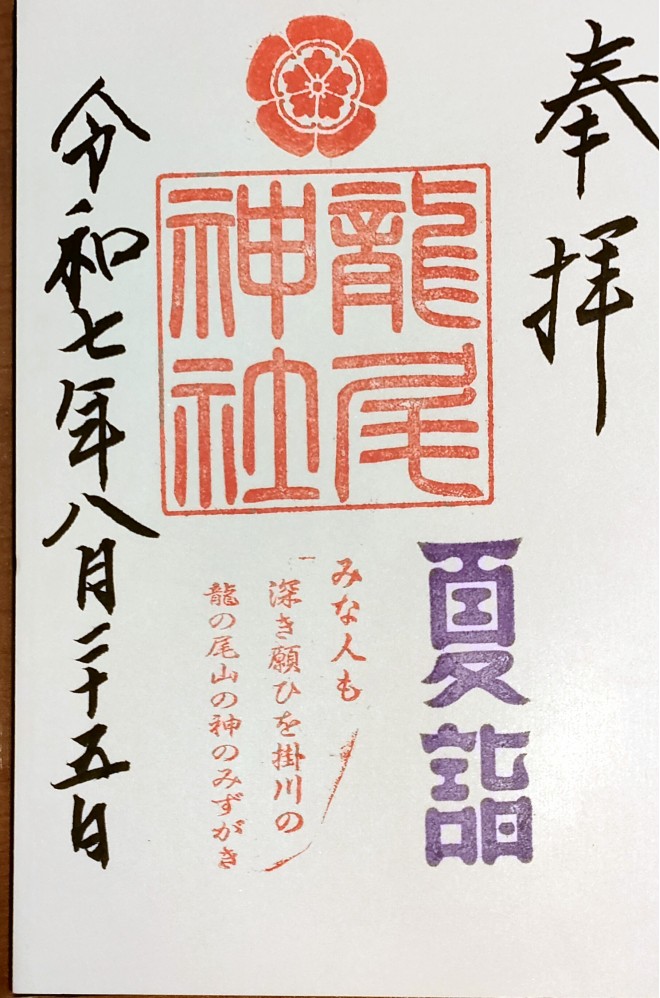 奉拝
龍尾
神社
夏詣
みな人も
深き願ひを掛川の
龍の尾山の神のみずがき
令和七年八月二十五日